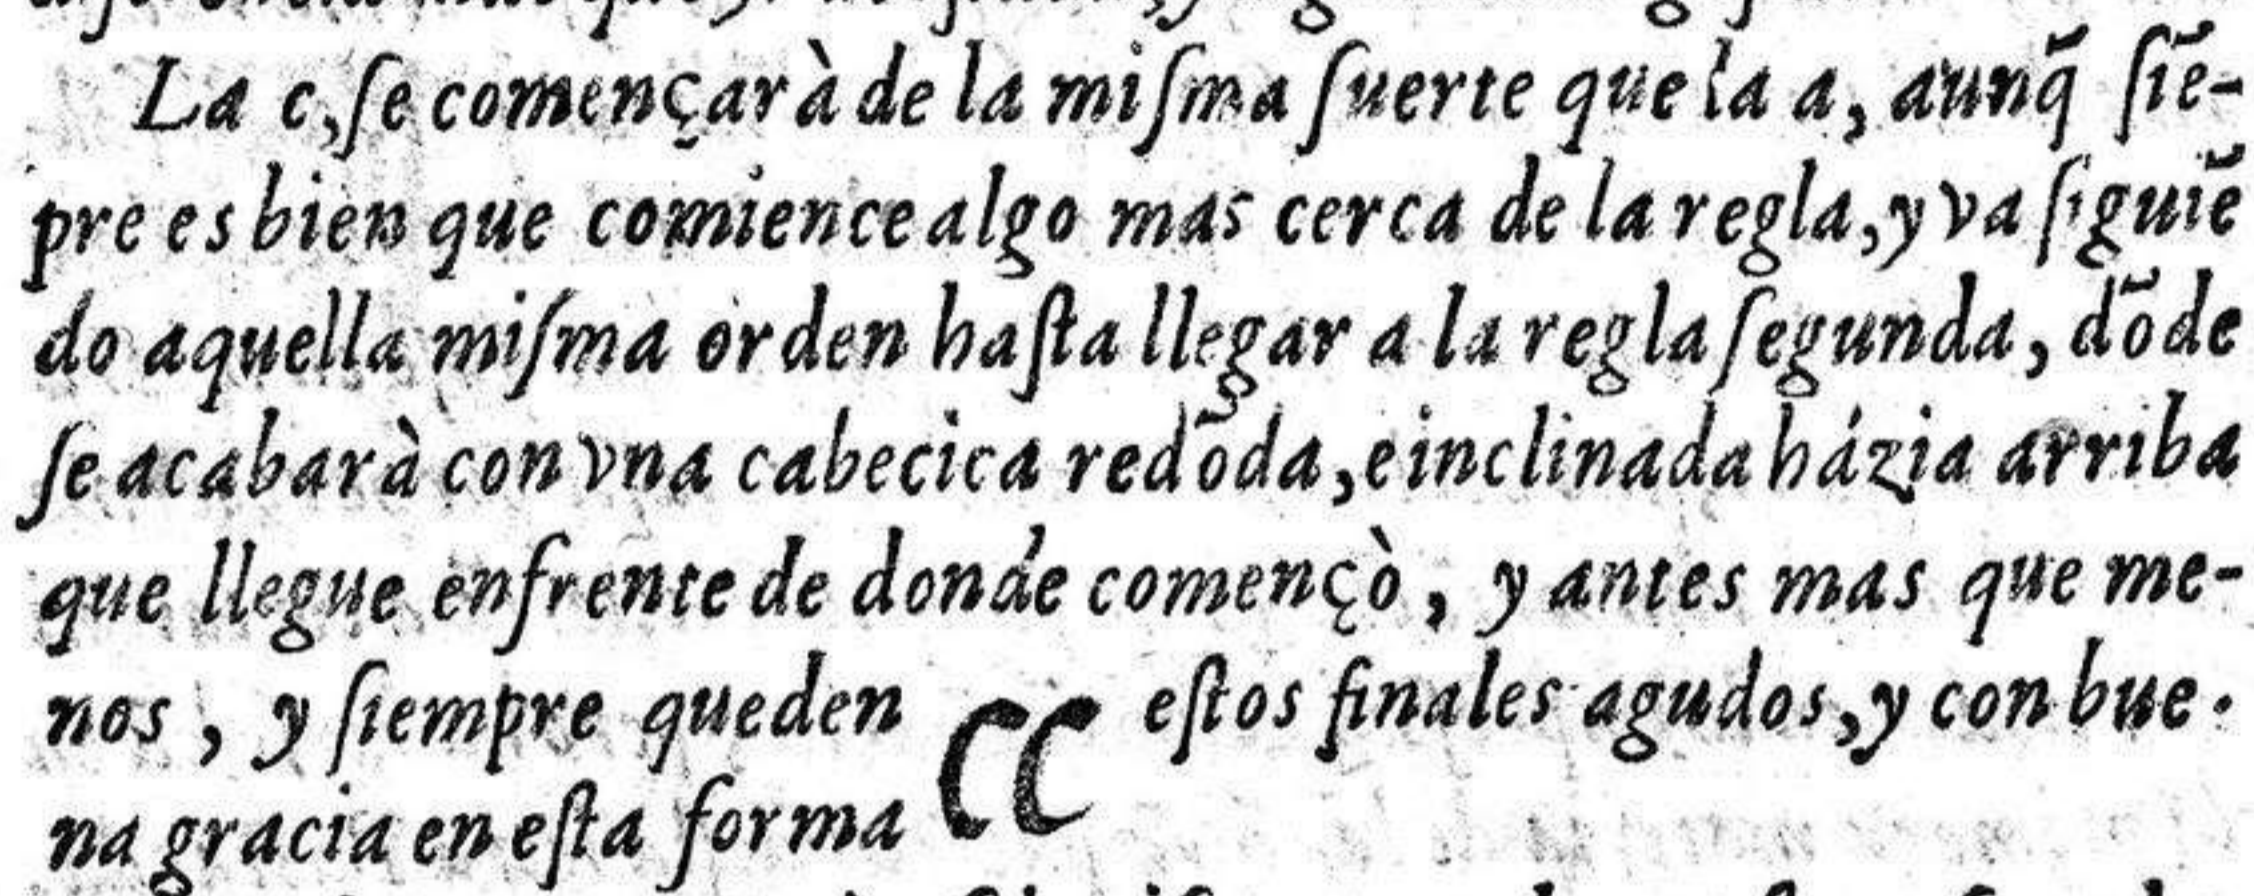 La c, ſe començarà de la miſma ſuerte que la a, aunq̃ ſiẽ-
pre es bien que comience algo mas cerca de la regla, y va ſiguiẽ
do aquella miſma orden haſta llegar a la regla ſegunda, dõde
ſe acabarà con vna cabecica redõda, e inclinada házia arriba
que llegue enfrente de donde començò, y antes mas que me-
nos, y ſiempre queden CC eſtos finales agudos, y con bue.
na gracia en eſta forma